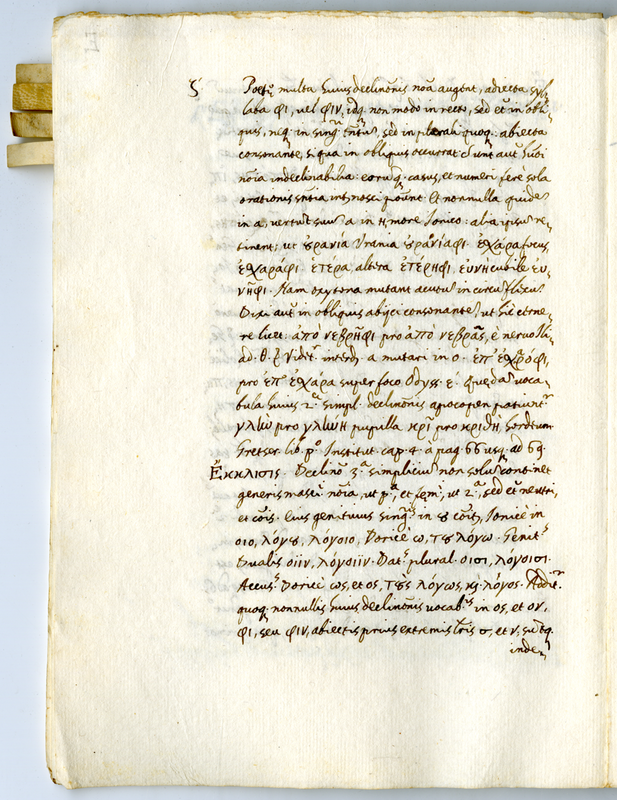 5 Poetę multa huius declinõnis noã augent, adiecta syl=
laba φι, vel φιν, idq. non modo in recto, sed et in obli=
quis, neq. in sing.ri tm̃, sed in plurali quoq. abiecta
consonante, si qua in obliquis occurrat. Sunt aut huĩ
nõia indeclinabilia: eoruq. casus, et numeri fere sola
orationis sñtia internosci põunt. Et nonnulla quidẽ
in a, vertũt suũ a in η more Ionico: alia re=
tinent; ut ȣρανία Urania ȣρανίαφι. ἐχάρα focus
ἐχαράφι. ἑτέρα, altera ἑτέρηφι, ἐυνὴ cubile ἐυ=
νῆφι. Nam oxytona mutant acutũ in circũflexũ.
Dixi aut in obliquis abijci consonantẽ, ut hic cerne=
re licet. ἀπὸ νεβρῆφι pro ἀπὸ νεβρᾶς, è neruo Ili=
ad. θ. Vidẽt. interd. a mutari in o. ἐπ' ἐχαρόφι,
pro ἐπ' ἐχάρα super foco Odyss. ε. Quędã voca=
bula huius 2.ae simpl. declinõnis apocopen patiunt.r
γλιὼ pro γλιωη pupilla κρῖ pro κριθὴ, hordeum.
Gretser. lib. p.o Institut. cap. 4. à pag. 66 usq. ad 69.
Ἔκκλισις. Declinõ 3.a simpliciũ non solũ continet
generis masc. nõia, ut p.a, et fęm̃, ut 2.a, sed et neutri,
et cõis. Eius genitiuus sing.is in ȣ cõiṫ, Ionicè in
οιο, λόγȣ, λόγοιο, Doricè ω, τȣ λόγω. Genit.s
Dualis οιϊν, λόγοιϊν. Dat.s plural. οισι, λόγοισι.
Accus.s Doricè ως, et ος, τȣ̀ς λόγως, κ̣ λόγος. Addit.r
quoq. nonnullis huius declinõnis vocab.is in ος, et ον,
φι, seu φιν, abiectis prius extremis lr̃is σ, et ν, suntq.
inde=